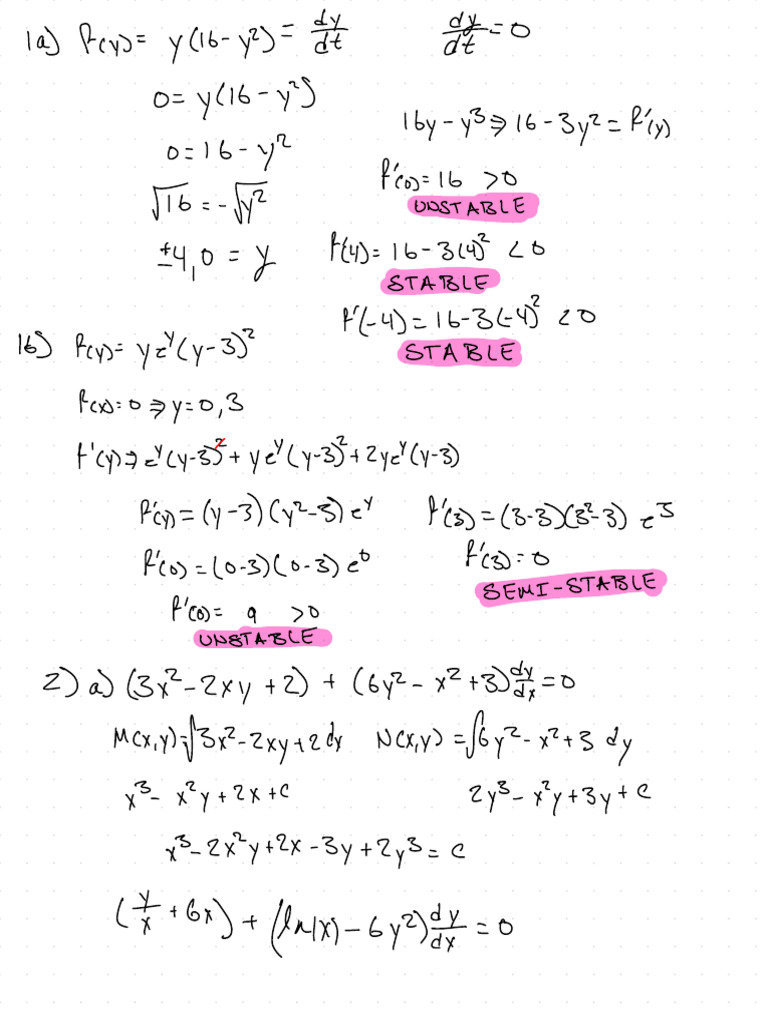 1a) f(y) = y(16 - y²) = dy/dt   dy/dt = 0
0 = y(16 - y²)
16y - y³ ⇒ 16 - 3y² = f'(y)
0 = 16 - y²
f'(0) = 16 > 0
UNSTABLE
√16 = -√y²
±4, 0 = y
f(4) = 16 - 3(4)² < 0
STABLE
f'(-4) = 16 - 3(-4)² < 0
STABLE
1b) f(y) = ye^y(y - 3)²
f(x) = 0 ⇒ y = 0, 3
f'(y) ⇒ e^y(y-3)² + ye^y(y-3)² + 2ye^y(y-3)
f'(y) = (y-3)(y²-3)e^y   f'(3) = (3-3)(3²-3)e³
f'(0) = (0-3)(0-3)e⁰   f'(3) = 0
SEMI-STABLE
f'(0) = 9 > 0
UNSTABLE
2) a) (3x² - 2xy + 2) + (6y² - x² + 3) dy/dx = 0
M(x,y) = ∫3x² - 2xy + 2 dx   N(x,y) = ∫6y² - x² + 3 dy
x³ - x²y + 2x + c   2y³ - x²y + 3y + c
x³ - 2x²y + 2x - 3y + 2y³ = c
(y/x + 6x) + (ln(x) - 6y²) dy/dx = 0